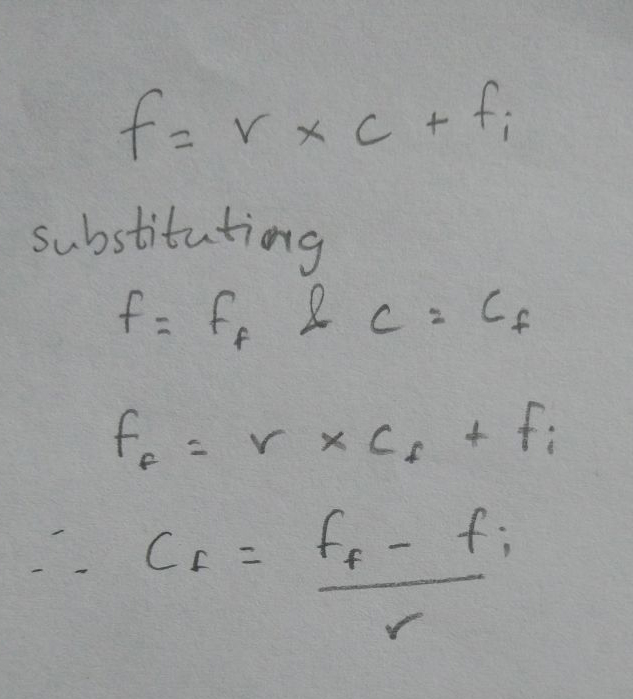 f = r × c + fᵢ
substituting
f = f_f & c = c_f
f_f = r × c_f + fᵢ
∴ c_f = f_f - fᵢ
r